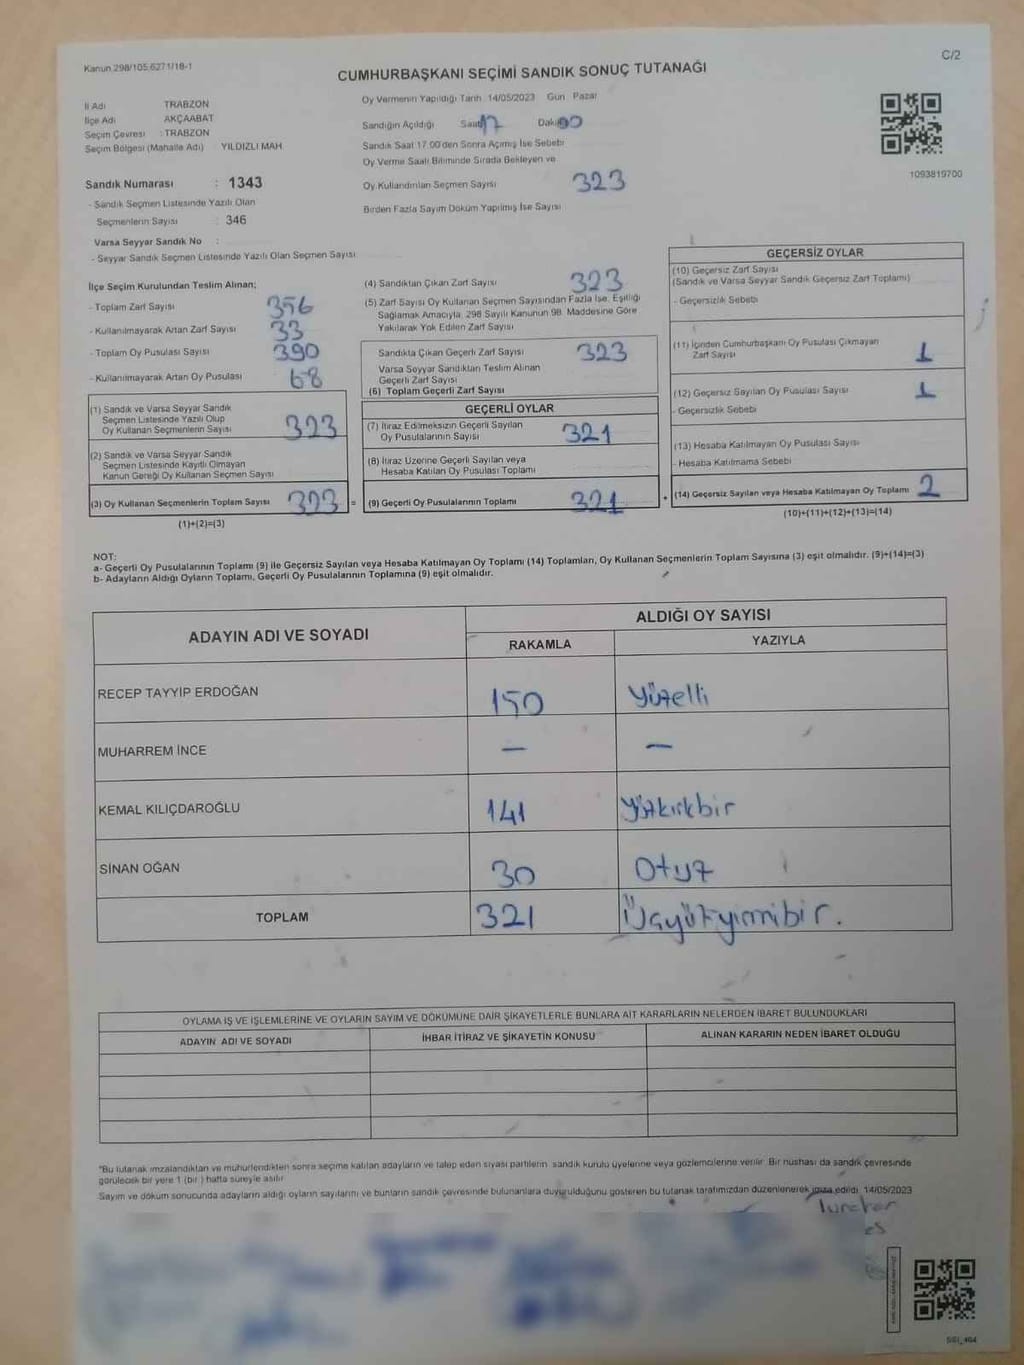 Kanun 298/105,6271/18-1
C/2
CUMHURBAŞKANI SEÇİMİ SANDIK SONUÇ TUTANAĞI
İl Adı TRABZON
İlçe Adı AKÇAABAT
Seçim Çevresi : TRABZON
Seçim Bölgesi (Mahalle Adı) YILDIZLI MAH
Sandık Numarası : 1343
- Sandık Seçmen Listesinde Yazılı Olan
Seçmenlerin Sayısı : 346
Varsa Seyyar Sandık No :
- Seyyar Sandık Seçmen Listesinde Yazılı Olan Seçmen Sayısı
Oy Vermenin Yapıldığı Tarih 14/05/2023 Gün Pazar
Sandığın Açıldığı Saat 17 Dakika 00
Sandık Saat 17.00'den Sonra Açımış İse Sebebi
Oy Verme Saati Bitiminde Sırada Bekleyen ve
Oy Kullandırılan Seçmen Sayısı 323
Birden Fazla Sayım Döküm Yapılmış İse Sayısı
1093819700
İlçe Seçim Kurulundan Teslim Alınan;
- Toplam Zarf Sayısı 356
- Kullanılmayarak Artan Zarf Sayısı 33
- Toplam Oy Pusulası Sayısı 390
- Kullanılmayarak Artan Oy Pusulası 68
(1) Sandık ve Varsa Seyyar Sandık
Seçmen Listesinde Yazılı Olup
Oy Kullanan Seçmenlerin Sayısı 323
(2) Sandık ve Varsa Seyyar Sandık
Seçmen Listesinde Kayıtlı Olmayan
Kanun Gereği Oy Kullanan Seçmen Sayısı
(3) Oy Kullanan Seçmenlerin Toplam Sayısı 323 =
(1)+(2)=(3)
(4) Sandıktan Çıkan Zarf Sayısı 323
(5) Zarf Sayısı Oy Kullanan Seçmen Sayısından Fazla İse, Eşitliği
Sağlamak Amacıyla, 298 Sayılı Kanunun 98. Maddesine Göre
Yakılarak Yok Edilen Zarf Sayısı
Sandıkta Çıkan Geçerli Zarf Sayısı 323
Varsa Seyyar Sandıktan Teslim Alınan
Geçerli Zarf Sayısı
(6) Toplam Geçerli Zarf Sayısı
GEÇERLİ OYLAR
(7) İtiraz Edilmeksizin Geçerli Sayılan
Oy Pusulalarının Sayısı 321
(8) İtiraz Üzerine Geçerli Sayılan veya
Hesaba Katılan Oy Pusulası Toplamı
(9) Geçerli Oy Pusulalarının Toplamı 321 +
GEÇERSİZ OYLAR
(10) Geçersiz Zarf Sayısı
(Sandık ve Varsa Seyyar Sandık Geçersiz Zarf Toplamı)
- Geçersizlik Sebebi
(11) İçinden Cumhurbaşkanı Oy Pusulası Çıkmayan
Zarf Sayısı 1
(12) Geçersiz Sayılan Oy Pusulası Sayısı 1
- Geçersizlik Sebebi
(13) Hesaba Katılmayan Oy Pusulası Sayısı
- Hesaba Katılmama Sebebi
(14) Geçersiz Sayılan veya Hesaba Katılmayan Oy Toplamı 2
(10)+(11)+(12)+(13)=(14)
NOT:
a- Geçerli Oy Pusulalarının Toplamı (9) ile Geçersiz Sayılan veya Hesaba Katılmayan Oy Toplamı (14) Toplamları, Oy Kullanan Seçmenlerin Toplam Sayısına (3) eşit olmalıdır. (9)+(14)=(3)
b- Adayların Aldığı Oyların Toplamı, Geçerli Oy Pusulalarının Toplamına (9) eşit olmalıdır.
ADAYIN ADI VE SOYADI
ALDIĞI OY SAYISI
RAKAMLA YAZIYLA
RECEP TAYYİP ERDOĞAN 150 Yüzelli
MUHARREM İNCE — —
KEMAL KILIÇDAROĞLU 141 Yüzkırkbir
SİNAN OĞAN 30 Otuz
TOPLAM 321 Üçyüzyirmibir.
OYLAMA İŞ VE İŞLEMLERİNE VE OYLARIN SAYIM VE DÖKÜMÜNE DAİR ŞİKAYETLERLE BUNLARA AİT KARARLARIN NELERDEN İBARET BULUNDUKLARI
ADAYIN ADI VE SOYADI İHBAR İTİRAZ VE ŞİKAYETİN KONUSU ALINAN KARARIN NEDEN İBARET OLDUĞU
"Bu tutanak imzalandıktan ve mühürlendikten sonra seçime katılan adayların ve talep eden siyasi partilerin sandık kurulu üyelerine veya gözlemcilerine verilir. Bir nüshası da sandık çevresinde
görülecek bir yere 1 (bir ) hafta süreyle asılır
Sayım ve döküm sonucunda adayların aldığı oyların sayılarını ve bunların sandık çevresinde bulunanlara duyurulduğunu gösteren bu tutanak tarafımızdan düzenlenerek imza edildi. 14/05/2023